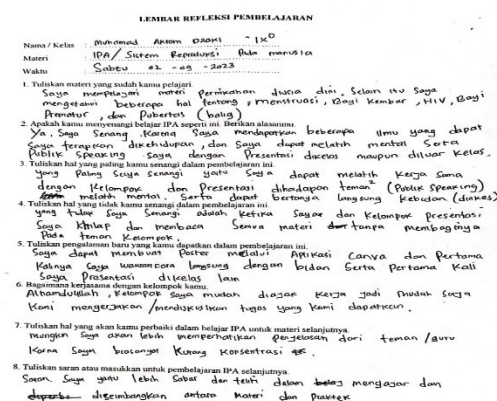 LEMBAR REFLEKSI PEMBELAJARAN
Nama / Kelas : Muhamad Akrom Dzaki - IX D
Materi : IPA / Sistem Reproduksi Pada manusia
Waktu : Sabtu 02 - 09 - 2023
1. Tuliskan materi yang sudah kamu pelajari.
Saya mempelajari materi pernikahan dusia dini, Selain itu Saya
mengetahui beberapa hal tentang, menstruasi, Bayi Kembar, HIV, Bayi
Prematur, dan Pubertas (balig)
2. Apakah kamu menyenangi belajar IPA seperti ini. Berikan alasanmu.
Ya, Saya Senang Karena Saya mendapatkan beberapa Ilmu yang dapat
Saya terapkan dikehidupan, dan Saya dapat melatih mental Serta
Publik Speaking saya dengan Presentasi dikelas maupun diluar Kelas.
3. Tuliskan hal yang paling kamu senangi dalam pembelajaran ini.
yang Paling Saya Senangi yaitu Saya dapat melatih Kerja Sama
dengan Kelompok dan Presentasi dihadapan teman² (Public Speaking)
melatih mental, Serta dapat bertanya langsung kebidan (dinkes)
4. Tuliskan hal yang tidak kamu senangi dalam pembelajaran ini.
yang tidak Saya Senangi adalah ketika Saya dan Kelompok presentasi
Saya Khilap dan membaca Semua materi tanpa membaginya
Pada teman Kelompok.
5. Tuliskan pengalaman baru yang kamu dapatkan dalam pembelajaran ini.
Saya dapat membuat Poster melalui Aplikasi Canva dan Pertama
Kalinya Saya wawancara langsung dengan bidan Serta Pertama Kali
Saya Presentasi dikelas lain
6. Bagaimana kerjasama dengan kelompok kamu.
Alhamdulillah, Kelompok Saya mudah diajak Kerja jadi mudah Saya
Kami mengerjakan / mendiskusikan tugas yang Kami dapatkan.
7. Tuliskan hal yang akan kamu perbaiki dalam belajar IPA untuk materi selanjutnya.
mungkin Saya akan lebih memperhatikan Penjelasan dari teman / guru
Karna Saya biasanya Kurang Konsentrasi
8. Tuliskan saran atau masukkan untuk pembelajaran IPA selanjutnya.
Saran Saya yaitu lebih Sabar dan teliti dalam mengajar dan
diseimbangkan antara Materi dan Praktek